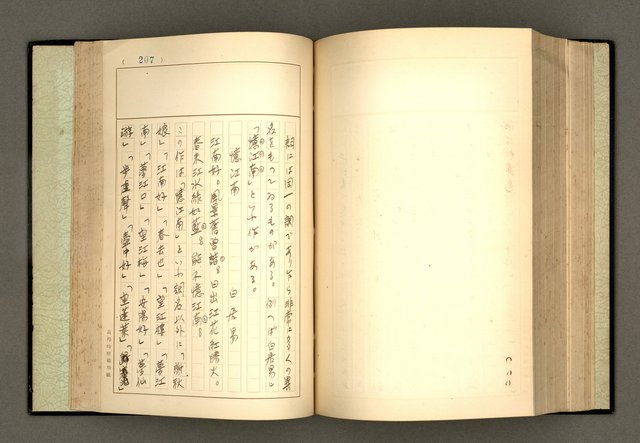 (207)
詞には同一の調でありながら非常に多くの異
名をもつてゐるものがある。例へば白居易に
「憶江南」といふ作がある。
憶江南 白居易
江南好。風景舊曾諳。日出江花紅勝火。
春來江水綠如藍。能不憶江南。
この作は「憶江南」といふ調名以外に「謝秋
娘」「江南好」「春去也」「望江樓」「夢江
南」「夢江口」「望江梅」「安陽好」「夢仙
遊」「步虛聲」「壺中好」「望蓬萊」